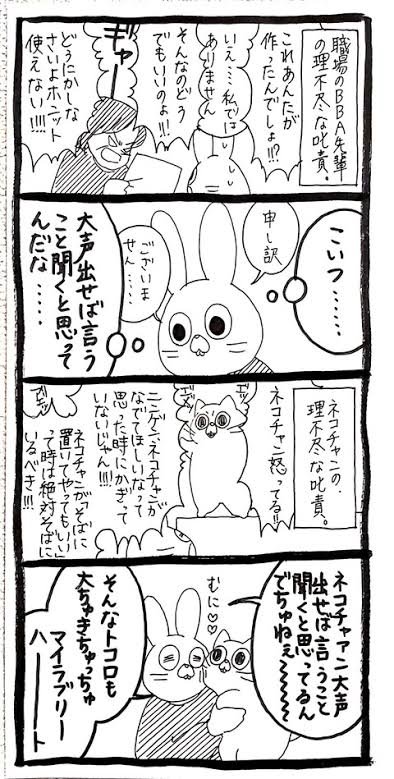 職場のBBA先輩
の理不尽な叱責。
これあんたが
作ったんでしょ!?
いえ……私では
ありません
そんなのどう
でもいいのよ!!
ギャー
どうにかしな
さいよホニット
使えない!!!!
こいつ……
申し訳
ございま
せん……
大声出せば言う
こと聞くと思って
んだな……
ネコチャンの
理不尽な叱責。
ネコチャン怒ってる!!
ニンゲン、ネコチャンが
なでてほしいなって
思った時にかぎって
いないじゃん!!!
ネコチャンが「そばに
置いてやってもいい」
って時は絶対そばに
いるべき!!!
ネコチャアン大声
出せば言うこと
聞くと思ってるん
でちゅねぇ〜〜〜〜
むに♡♡
そんなトコロも
大ちゅきちゅっちゅ
マイラブリー
ハーーート